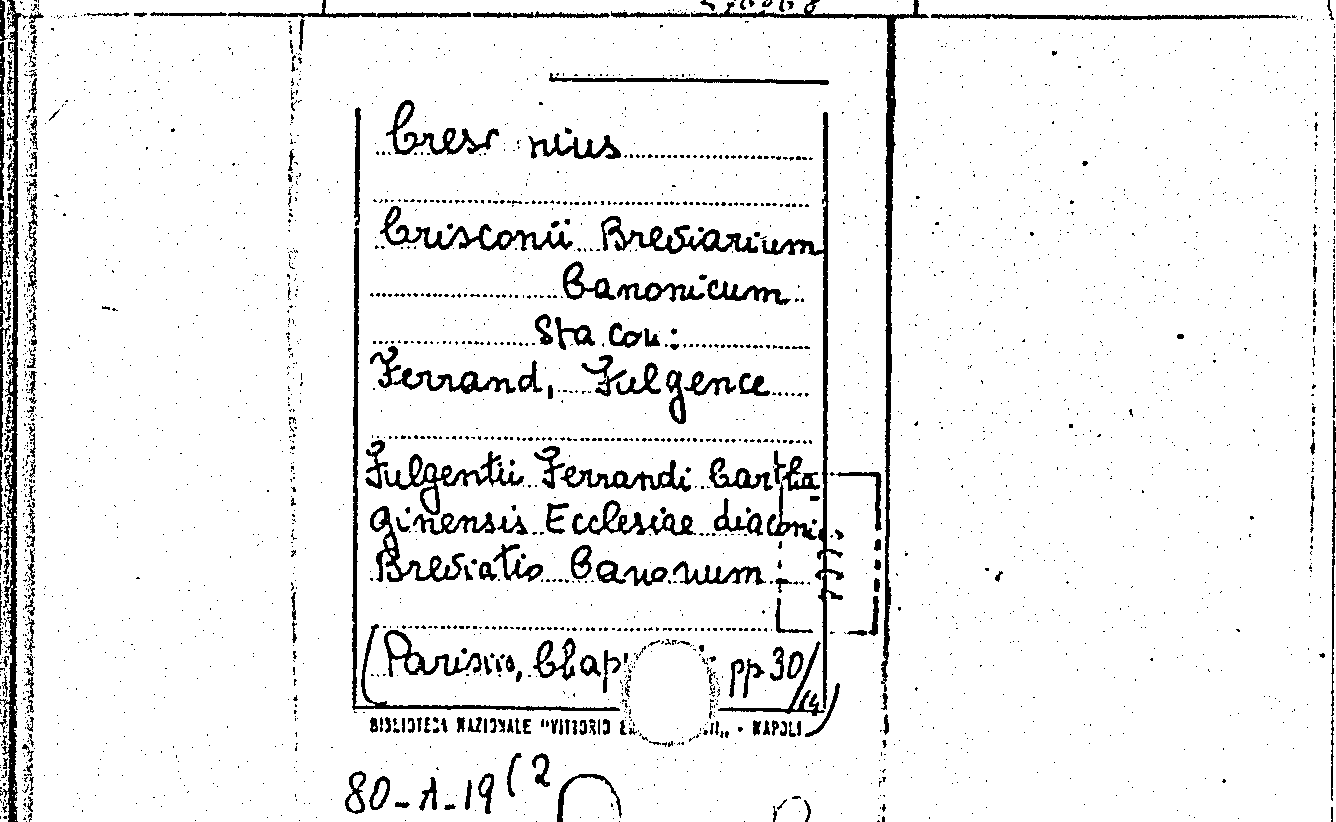 Cres nius
Crisconii Breviarium
Canonicum
Sta con:
Ferrand, Fulgence
Fulgentii Ferrandi Cartha
ginensis Ecclesiae diaconi
Breviatio Canonum
(Parisiis, pp 30/
BIBLIOTECA NAZIONALE "VITTORIO - NAPOLI
80-A-19 (2